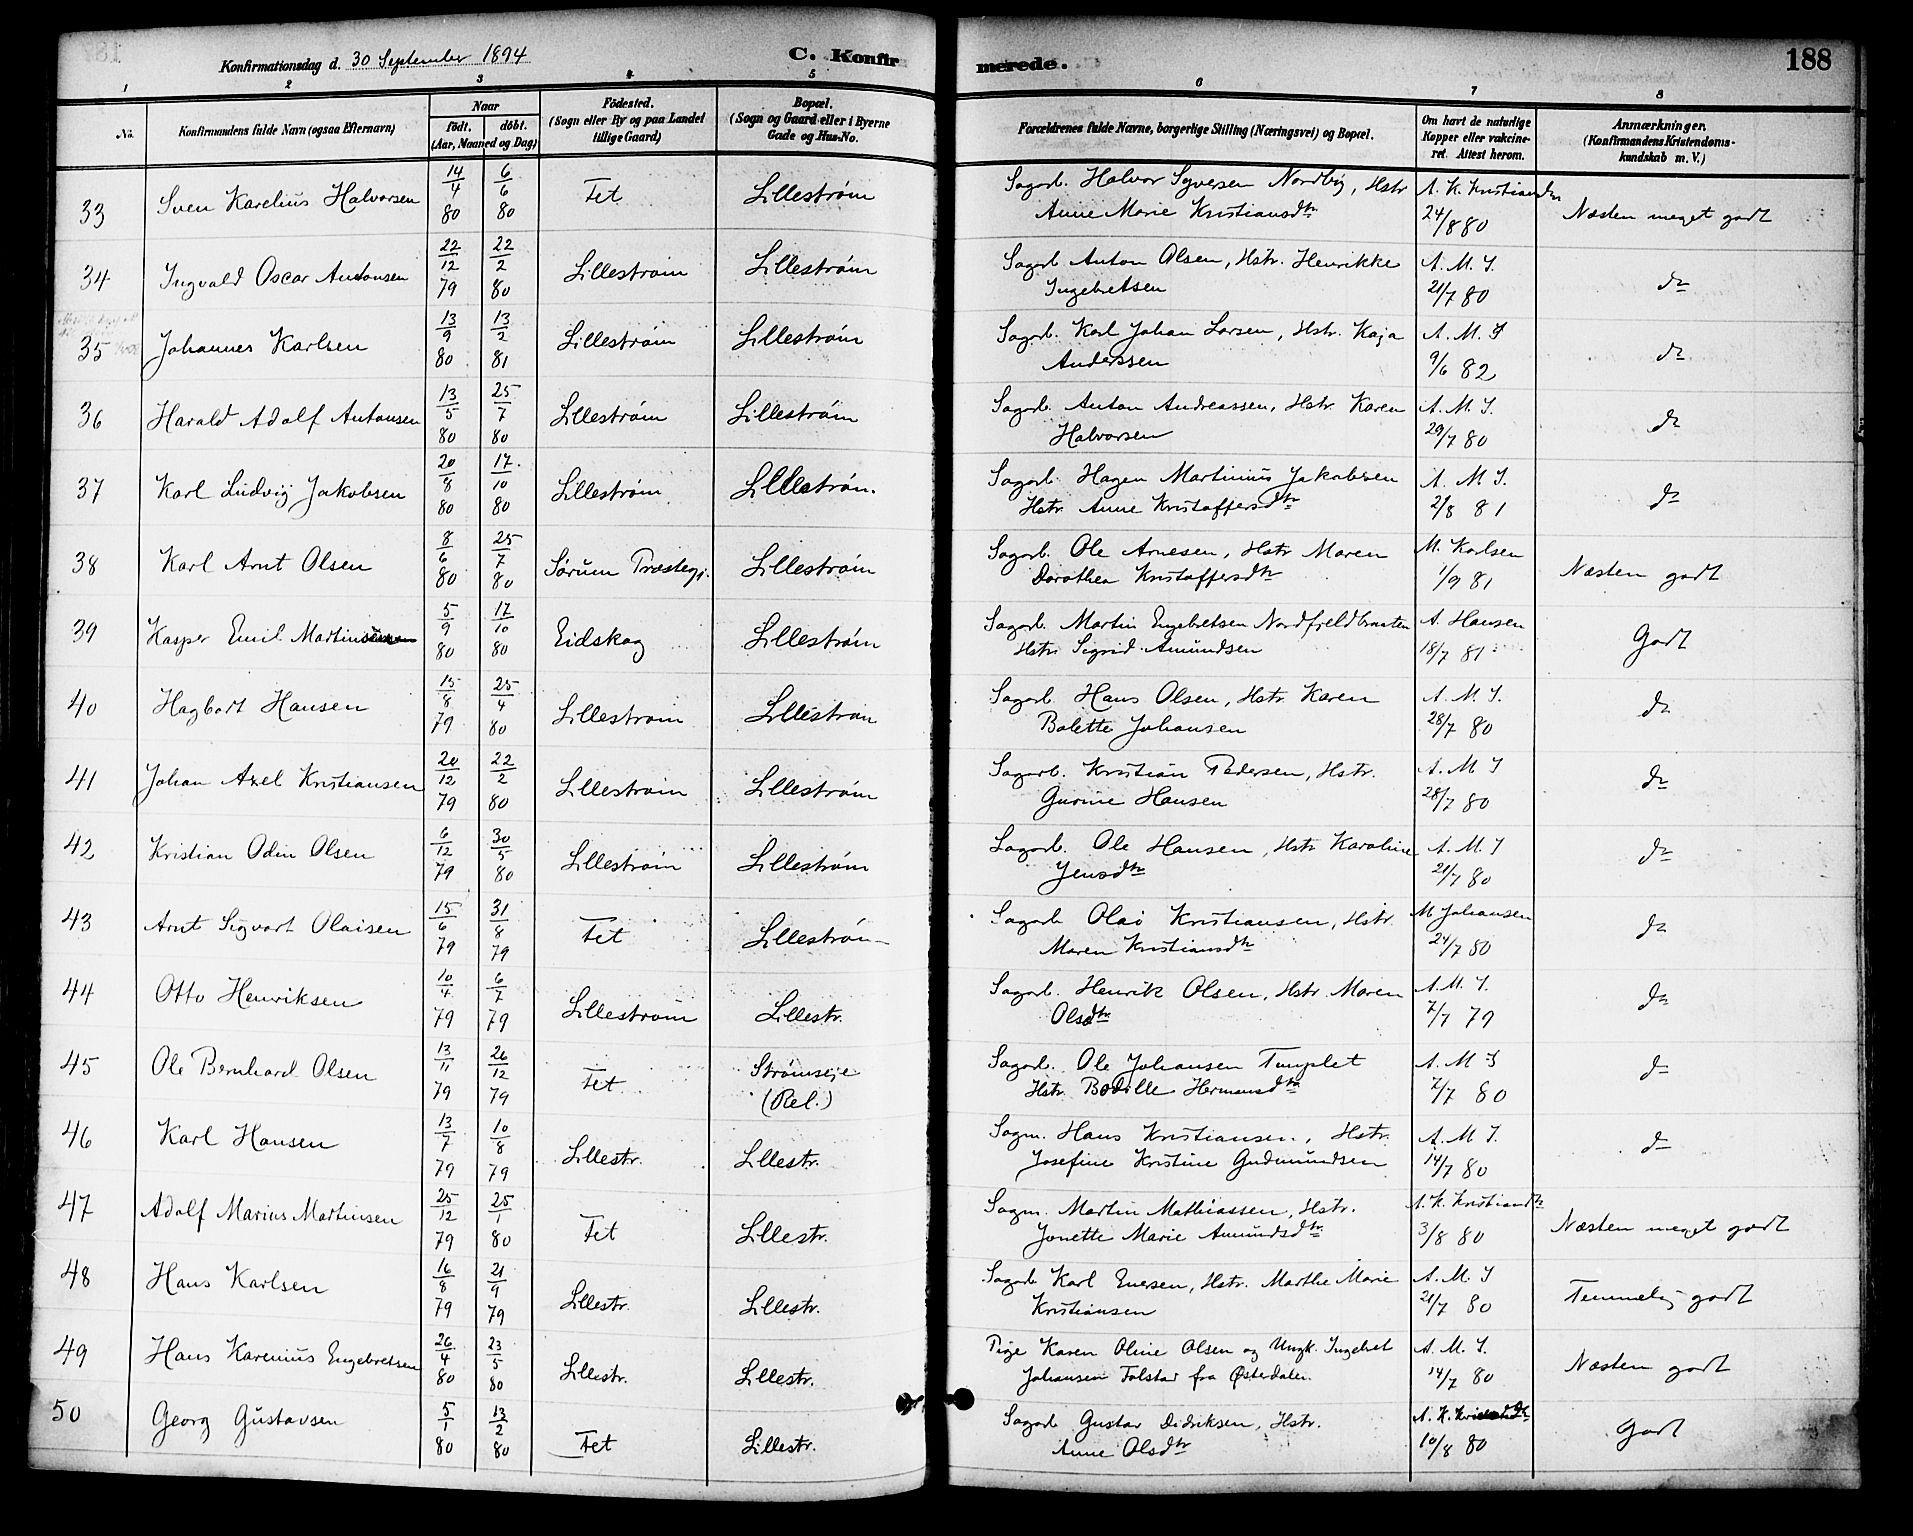 Konfirmationsdag d. 30 September 1894
C. Konfirmerede.
188
1 2 3 4 5 6 7 8
No.
Konfirmandens fulde Navn (ogsaa Efternavn)
Naar
födt. döbt.
(Aar, Maaned og Dag)
Födested.
(Sogn eller By og paa Landet
tillige Gaard)
Bopæl.
(Sogn og Gaard eller i Byerne
Gade og Hus-No.
Forældrenes fulde Navne, borgerlige Stilling (Næringsvei) og Bopæl.
Om havt de naturlige
Kopper eller vakcine-
ret. Attest herom.
Anmærkninger.
(Konfirmandens Kristendoms-
kundskab m. V.)
33 Sven Karelius Halvorsen 14/4 80 6/6 80 Fet Lillestrøm Sagarb. Halvor Syversen Nordby, Hstr A. K. Kristiansdtr
Anne Marie Kristiansdtr 24/8 80 Næsten meget godt
34 Ingvald Oscar Antonsen 22/12 79 22/2 80 Lillestrøm Lillestrøm Sagarb Anton Olsen, Hstr. Henrikke A. M. I.
Ingebretsen 21/7 80 do
35 Johannes Karlsen 13/9 80 13/2 81 Lillestrøm Lillestrøm Sagarb. Karl Johan Larsen, Hstr. Kaja A. M. I
Anderssen 9/6 82 do
36 Harald Adolf Antonsen 13/5 80 25/7 80 Lillestrøm Lillestrøm Sagarb. Anton Andreassen, Hstr. Karen A. M. I.
Halvorsen 29/7 80 do
37 Karl Ludvig Jakobsen 20/8 80 17/10 80 Lillestrøm Lillestrøm. Sagarb. Hagen Martinius Jakobsen A. M I.
Hstr. Anne Kristoffersdtr 2/8 81 do
38 Karl Arnt Olsen 8/6 80 25/7 80 Sørum Præstegj. Lillestrøm Sagarb. Ole Arnesen, Hstr Maren M. Karlsen
Dorothea Kristoffersdtr 1/9 81 Næsten godt
39 Kasper Emil Martinsen 5/9 80 17/10 80 Eidskog Lillestrøm Sagarb. Martin Engebretsen Nordfjeldbraaten A. Hansen
Hstr. Sigrid Amundsen 18/7 81 Godt
40 Hagbart Hansen 15/8 79 25/4 80 Lillestrøm Lillestrøm Sagarb. Hans Olsen, Hstr Karen A. M. I.
Bolette Johansen 28/7 80 do
41 Johan Axel Kristiansen 20/12 79 22/2 80 Lillestrøm Lillestrøm Sagarb. Kristian Pedersen, Hstr. A. M I
Gurine Hansen 28/7 80 do
42 Kristian Odin Olsen 6/12 79 30/5 80 Lillestrøm Lillestrøm Sagarb. Ole Hansen, Hstr Karoline A. M. I
Jensdtr 21/7 80 do
43 Arnt Sigvart Olaisen 15/6 79 31/8 79 Fet Lillestrøm Sagarb Olai Kristiansen, Hstr. M Johansen
Maren Kristiansdtr 24/7 80 do
44 Otto Henriksen 10/4 79 6/7 79 Lillestrøm Lillestr. Sagarb. Henrik Olsen, Hstr. Maren A. M. I.
Olsdtr 7/7 79 do
45 Ole Bernhard Olsen 13/11 79 26/12 79 Fet. Strømseje
(Rel.) Sagarb. Ole Johansen Tunplet A. M I
Hstr. Bodille Hermansdtr 7/7 80 do
46 Karl Hansen 13/7 79 10/8 79 Lillestr. Lillestr. Sagm. Hans Kristiansen, Hstr. A. M I.
Josefine Kristine Gudmundsen 14/7 80 do
47 Adolf Marius Martinsen 25/12 79 25/1 80 Fet Lillestr. Sagm. Martin Mathiassen, Hstr. A. K. Kristiansdtr
Jonette Marie Amundsdtr 3/8 80 Næsten meget godt
48 Hans Karlsen 16/8 79 21/9 79 Lillestr. Lillestr. Sagarb Karl Evensen, Hstr. Marthe Marie A. M. I
Kristiansen 21/7 80 Temmelig godt
49 Hans Karenius Engebretsen 26/4 80 23/5 80 Lillestr. Lillestr. Pige Karen Oline Olsen og Ungk. Ingebret A. M. I.
Johansen Tolstad fra Østerdalen 14/7 80 Næsten godt
50 Georg Gustavsen 5/1 80 13/2 80 Fet Lillestr. Sagarb Gustav Didriksen, Hstr. A. K.
Anne Olsdtr 10/8 80 Godt